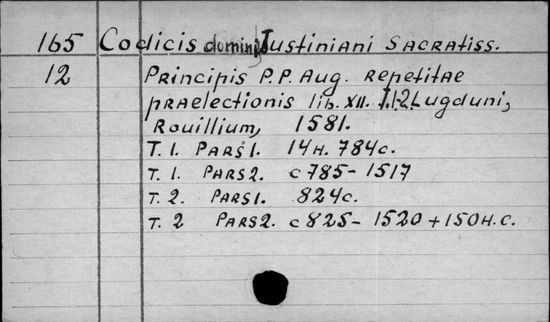 165 Codicis domini Justiniani Sacratiss.
12 Principis P.P. Aug. repetitae
praelectionis lib. XII. T.1.2. Lugduni,
Rouillium, 1581.
T. 1. Pars 1. 14 H. 784 c.
T. 1. Pars 2. c 785 - 1517
T. 2. Pars 1. 824 c.
T. 2 Pars 2. c 825 - 1520 + 150 H. C.